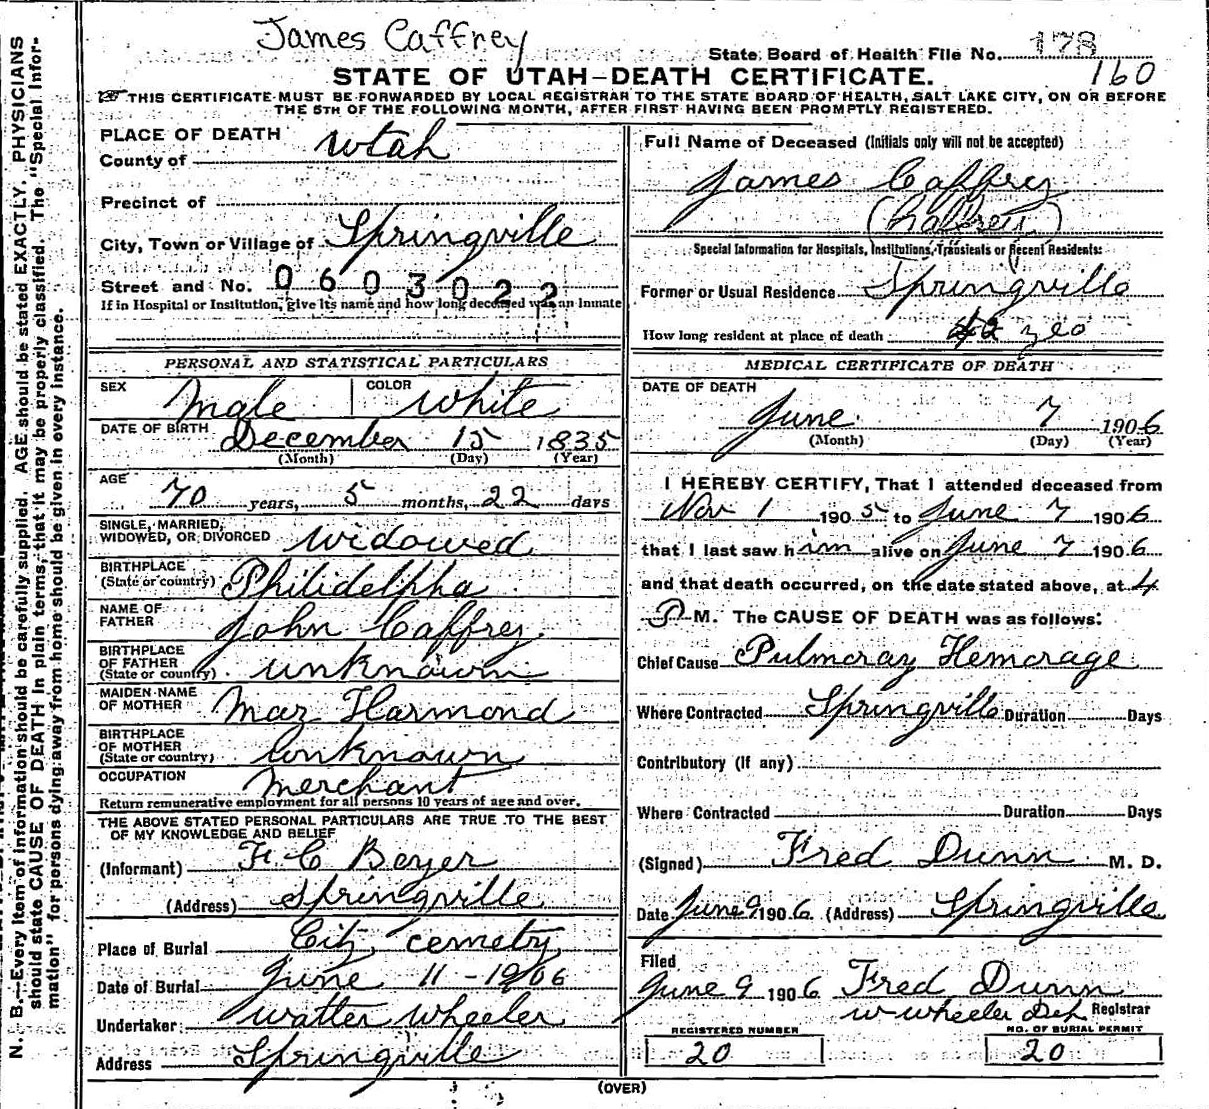 James Caffrey
State Board of Health File No. 178
160
STATE OF UTAH—DEATH CERTIFICATE.
THIS CERTIFICATE MUST BE FORWARDED BY LOCAL REGISTRAR TO THE STATE BOARD OF HEALTH, SALT LAKE CITY, ON OR BEFORE
THE 5TH OF THE FOLLOWING MONTH, AFTER FIRST HAVING BEEN PROMPTLY REGISTERED.
PLACE OF DEATH
County of Utah
Precinct of
City, Town or Village of Springville
Street and No. 0603022
If in Hospital or Institution, give its name and how long deceased was an inmate
PERSONAL AND STATISTICAL PARTICULARS
SEX Male COLOR White
DATE OF BIRTH December 15 1835
(Month) (Day) (Year)
AGE 70 years, 5 months, 22 days
SINGLE, MARRIED,
WIDOWED, OR DIVORCED widowed
BIRTHPLACE
(State or country) Philidelpha
NAME OF
FATHER John Caffrey
BIRTHPLACE
OF FATHER
(State or country) unknown
MAIDEN NAME
OF MOTHER May Harmond
BIRTHPLACE
OF MOTHER
(State or country) Unknown
OCCUPATION Merchant
Return remunerative employment for all persons 10 years of age and over.
THE ABOVE STATED PERSONAL PARTICULARS ARE TRUE TO THE BEST
OF MY KNOWLEDGE AND BELIEF
(Informant) H. C Beyer
(Address) Springville
Place of Burial City cemetry
Date of Burial June 11 - 1906
Undertaker Walter Wheeler
Address Springville
Full Name of Deceased (Initials only will not be accepted)
James Caffrey
Special Information for Hospitals, Institutions, Transients or Recent Residents:
Former or Usual Residence Springville
How long resident at place of death 42 yeo
MEDICAL CERTIFICATE OF DEATH
DATE OF DEATH
June 7 1906
(Month) (Day) (Year)
I HEREBY CERTIFY, That I attended deceased from
Nov 1 1905 to June 7 1906
that I last saw him alive on June 7 1906
and that death occurred, on the date stated above, at 4
P M. The CAUSE OF DEATH was as follows:
Chief Cause Pulmoray Hemorage
Where Contracted Springville Duration Days
Contributory (if any)
Where Contracted Duration Days
(Signed) Fred Dunn M. D.
Date June 9 1906 (Address) Springville
Filed
June 9 1906 Fred Dunn
W Wheeler Dep Registrar
REGISTERED NUMBER
20
NO. OF BURIAL PERMIT
20
(OVER)
N. B.—Every item of information should be carefully supplied. AGE should be stated EXACTLY. PHYSICIANS
should state CAUSE OF DEATH in plain terms, that it may be properly classified. The "Special Infor-
mation" for persons dying away from home should be given in every instance.